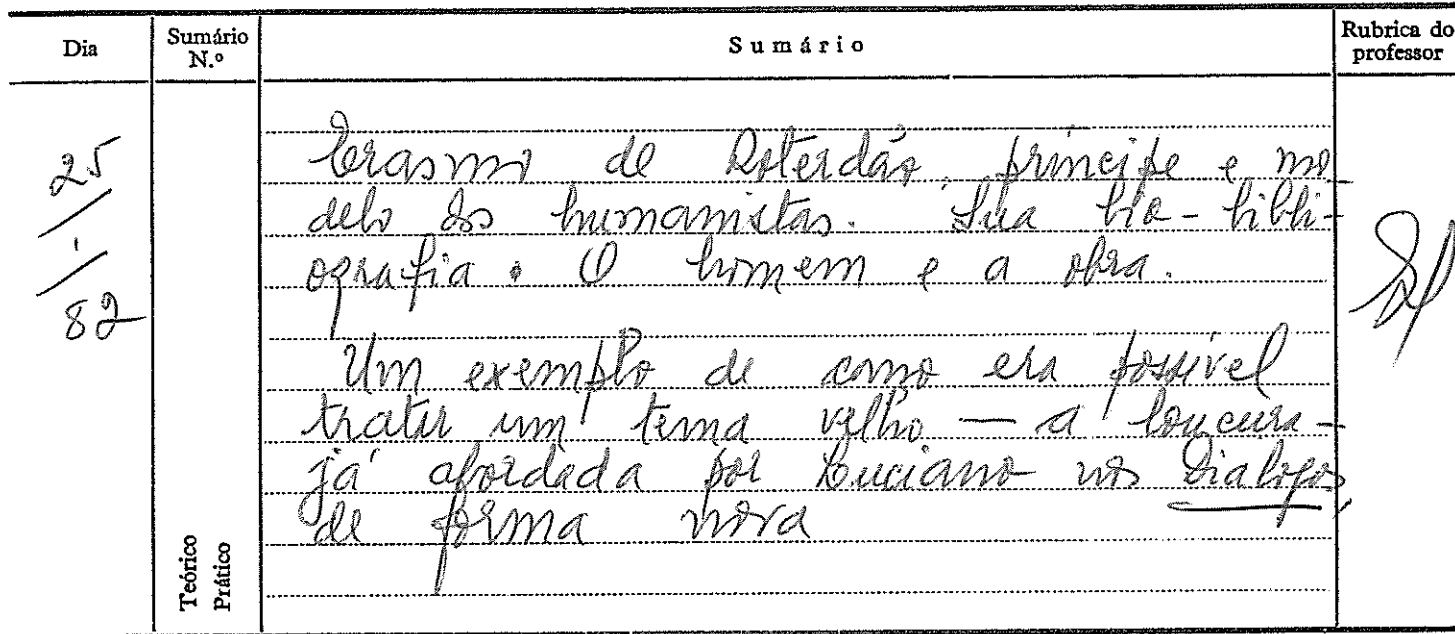 Dia
Sumário N.º
Sumário
Rubrica do professor
25
1
82
Erasmo de Roterdão, príncipe e mo
delo dos humanistas. Sua bio-bibli-
ografia. O homem e a obra.
Um exemplo de como era possível
tratar um tema velho — a loucura -
já abordada por Luciano nos Dialogos,
de forma nova
Teórico
Prático